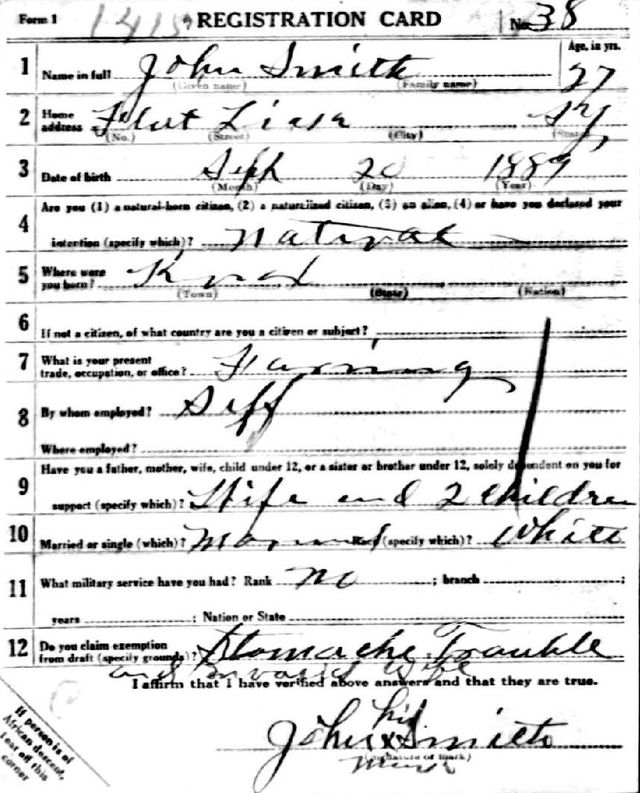 Form 1 1415 REGISTRATION CARD No. 38
1 Name in full John Smith Age, in yrs. 27
(Given name) (Family name)
2 Home address Flat Lick Ky,
(No.) (Street) (City) (State)
3 Date of birth Sept 20 1889
(Month) (Day) (Year)
4 Are you (1) a natural-born citizen, (2) a naturalized citizen, (3) an alien, (4) or have you declared your
intention (specify which)? Natural
5 Where were you born? Knox
(Town) (State) (Nation)
6 If not a citizen, of what country are you a citizen or subject?
7 What is your present trade, occupation, or office? Farming
8 By whom employed? Self
Where employed?
9 Have you a father, mother, wife, child under 12, or a sister or brother under 12, solely dependent on you for
support (specify which)? Wife and 2 children
10 Married or single (which)? Married Race (specify which)? White
11 What military service have you had? Rank no ; branch ;
years ; Nation or State
12 Do you claim exemption from draft (specify grounds)? Stomache Trouble
and wife
I affirm that I have verified above answers and that they are true.
his
John X Smith
(Signature or mark)
mark
If person is of
African descent,
tear off this
corner